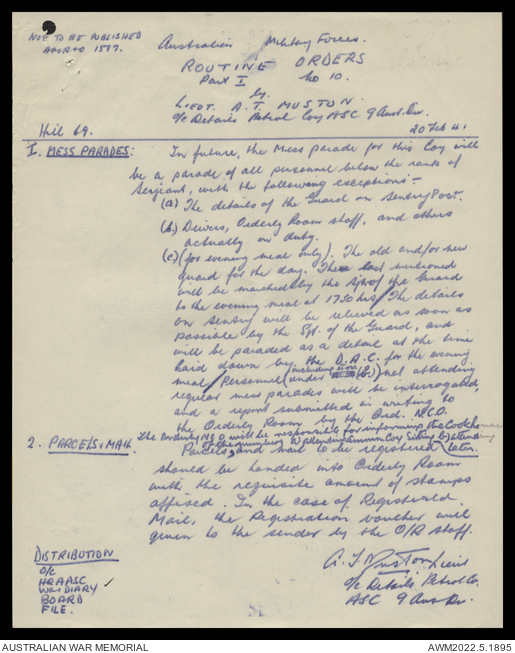 NOT TO BE PUBLISHED
AMR+O 1587.
Australian Military Forces.
ROUTINE ORDERS
Part I No 10.
by
LIEUT. A.T. MUSTON
O/c Details Petrol Coy ASC 9 Aust. Div.
Hill 69.
20 Feb 41
I. MESS PARADES:
In future, the Mess parade for this Coy will
be a parade of all personnel below the rank of
Sergeant, with the following exceptions:-
(a) The details of the Guard on Sentry Post.
(b) Drivers, Orderly Room staff, and others
actually on duty.
(c) (for evening meal only). The old and/or new
guard for the day. These last mentioned
will be marched by the Sgt of the Guard
to the evening meal at 1750 hrs/ The details
on sentry will be relieved as soon as
possible by the Sgt. of the Guard, and
will be paraded as a detail at the time
laid down by the D.A.C. for the evening
meal/ Personnel (including those
under (b)) not attending
regular mess parades will be interrogated,
and a report submitted in writing to
the Orderly Room by the Ord. N.C.O.
The Orderly NCO will be responsible for informing the Cookhouse
of the number to attend
later.
2. PARCELS & MAIL
Parcels, and mail to be registered
should be handed into Orderly Room
with the requisite amount of stamps
affixed. In the case of Registered
Mail, the Registration voucher will
given to the sender by the O/R staff.
A. T. Muston Lieut
O/c Details Petrol Co
ASC 9 Aus Div.
DISTRIBUTION
O/C
HRAASC
WAR DIARY ✓
BOARD
FILE.
AUSTRALIAN WAR MEMORIAL
AWM2022.5.1895